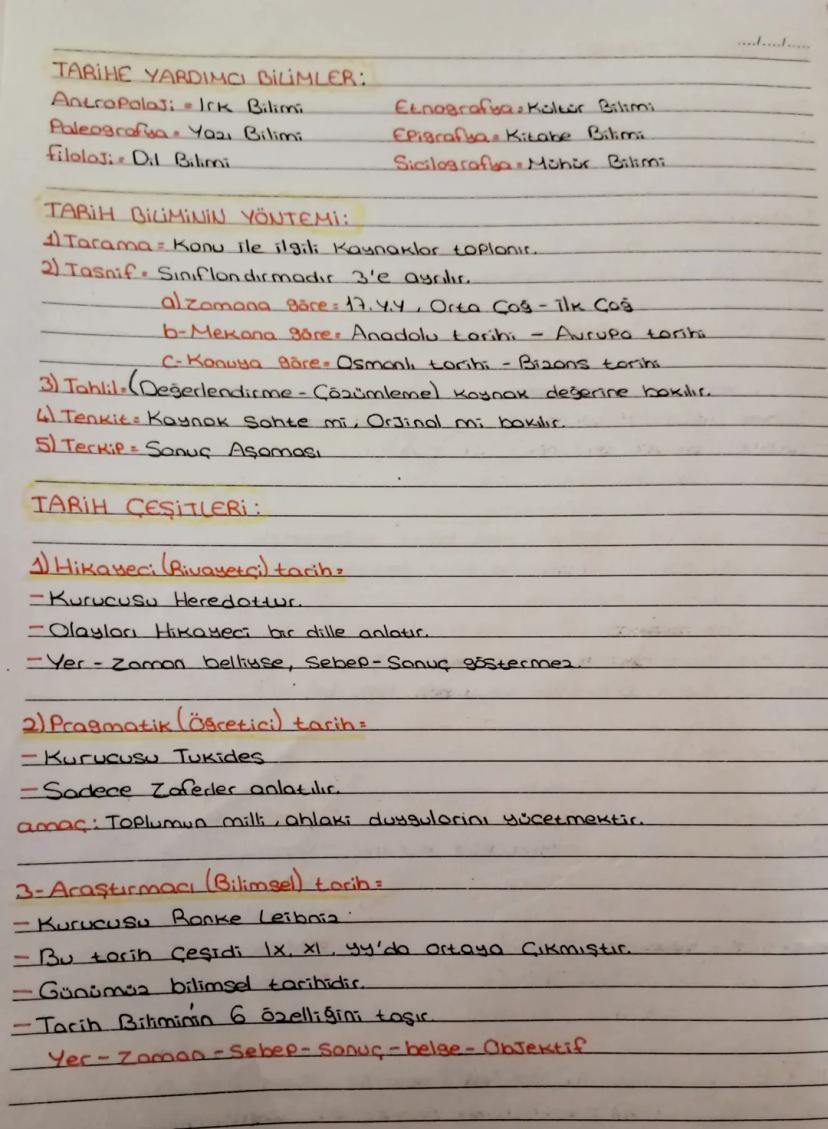 ..../..../.....
TARİHE YARDIMCI BİLİMLER:
Antropoloji = Irk Bilimi    Etnografya = Kültür Bilimi
Paleografya = Yazı Bilimi    Epigrafya = Kitabe Bilimi
filoloji = Dil Bilimi    Sicilografya = Mühür Bilimi
TARİH BİLİMİNİN YÖNTEMİ:
1) Tarama = Konu ile ilgili Kaynaklar toplanır.
2) Tasnif = Sınıflandırmadır 3'e ayrılır.
a) zamana göre = 17.Y.Y, Orta Çağ - İlk Çağ
b- Mekana göre = Anadolu tarihi - Avrupa tarihi
c- Konuya göre = Osmanlı tarihi - Bizans tarihi
3) Tahlil = (Değerlendirme - Çözümleme) kaynak değerine bakılır.
4) Tenkit = Kaynak Sahte mi, Orjinal mi bakılır.
5) Terkip = Sonuç Aşaması
TARİH ÇEŞİTLERİ:
1) Hikayeci (Rivayetçi) tarih =
- Kurucusu Heredottur.
- Olayları Hikayeci bir dille anlatır.
- Yer - Zaman belliyse, Sebep - Sonuç göstermez.
2) Pragmatik (Öğretici) tarih =
- Kurucusu Tukides
- Sadece Zaferler anlatılır.
amaç: Toplumun milli, ahlaki duygularını yücetmektir.
3- Araştırmacı (Bilimsel) tarih =
- Kurucusu Ranke Leibniz
- Bu tarih Çeşidi IX. XI. yy'da ortaya Çıkmıştır.
- Günümüz bilimsel tarihidir.
- Tarih Biliminin 6 özelliğini taşır.
Yer - Zaman - Sebep - Sonuç - belge - Objektif